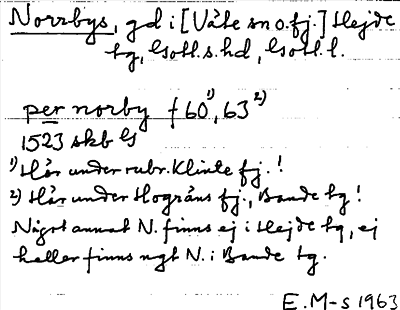 Norrbys, gd i [Väte sn o. fj.] Hejde
tg, Gotl. s. hd, Gotl. l.
per norby f 60¹⁾, 63²⁾
1523 skb G
1) Här under rubr. Klinte fj. !
2) Här under Hogräns fj., Bande tg !
Något annat N. finns ej i Hejde tg, ej
heller finns ngt N. i Bande tg.
E. M-s 1963